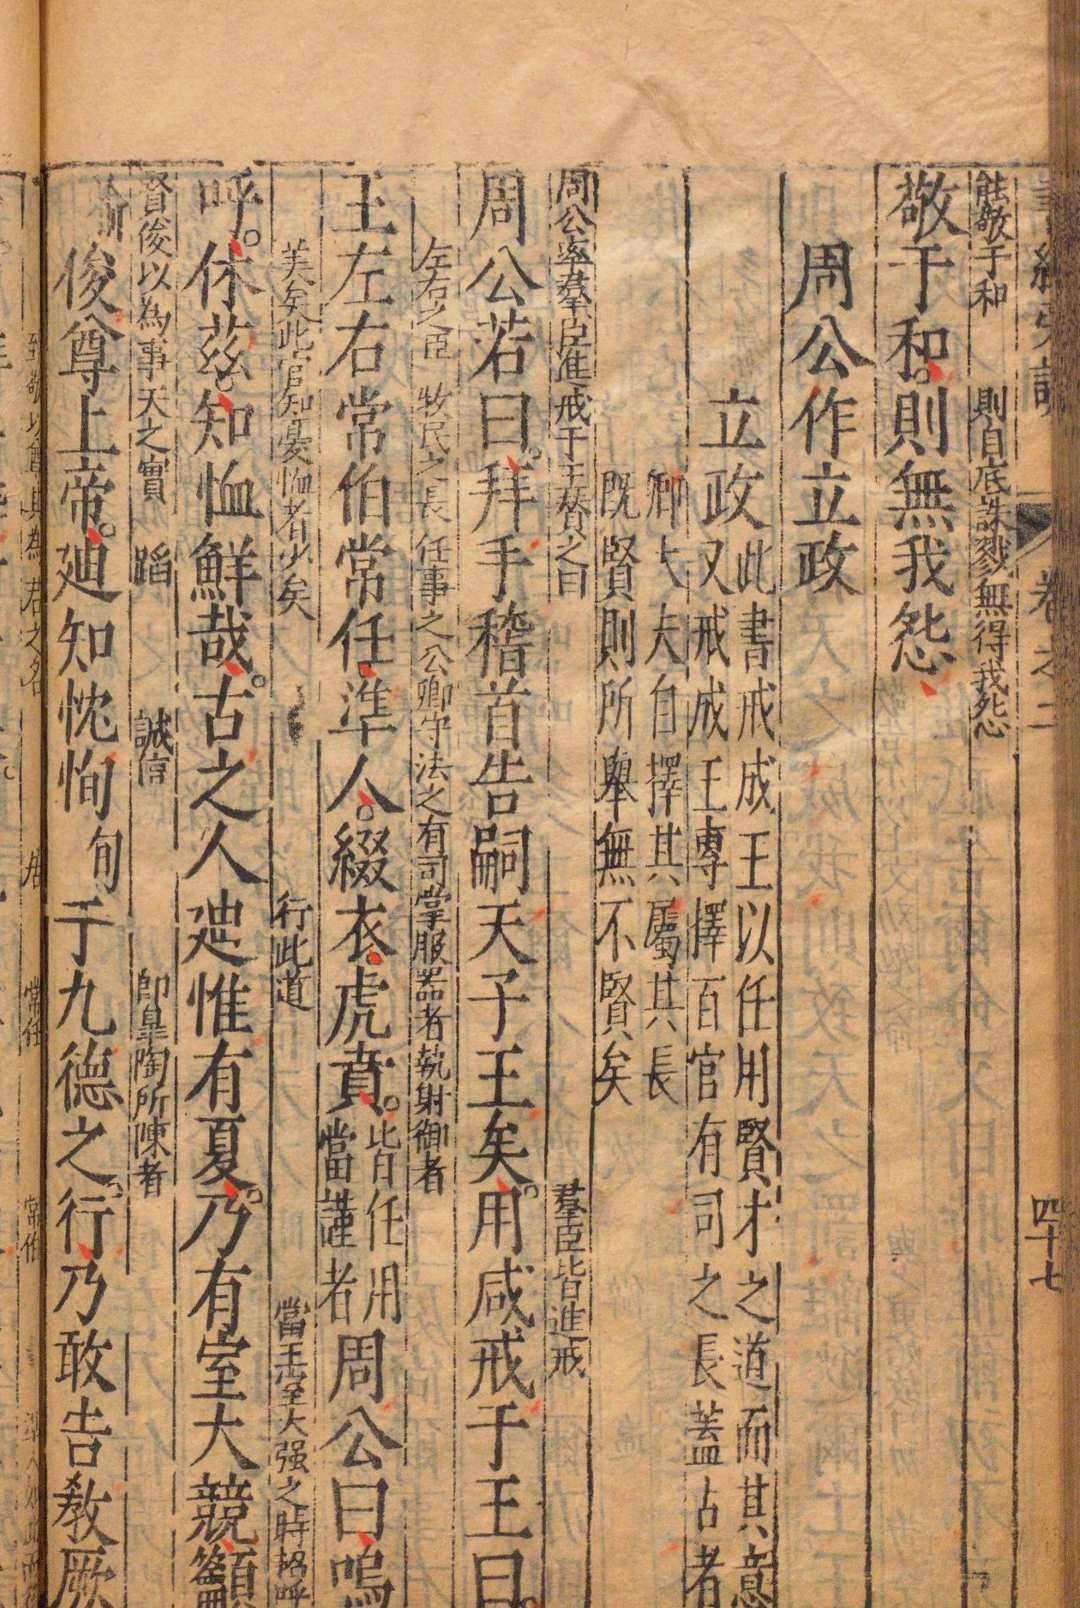 卷之二 四十七
能敬于和 則自底誅戮無得我怨
敬于和則無我怨
周公作立政
立政此書戒成王以任用賢才之道而其意
又戒成王專擇百官有司之長蓋占者
卿大夫自擇其屬其長
既賢則所舉無不賢矣
周公率羣臣進戒于王贊之曰 羣臣皆進戒
周公若曰拜手稽首告嗣天子王矣用咸戒于王曰
左右之臣 牧民之長 任事之公卿守法之有司掌服器者執射御者
王左右常伯常任準人綴衣虎賁皆任用當謹者周公曰嗚
美矣此官知憂恤者少矣 行此道 當王室大强之時招呼
呼休茲知恤鮮哉古之人迪惟有夏乃有室大競籲
賢俊以為事天之實 蹈 誠信 卽臯陶所陳者
俊尊上帝迪知忱恂于九德之行乃敢告教厥